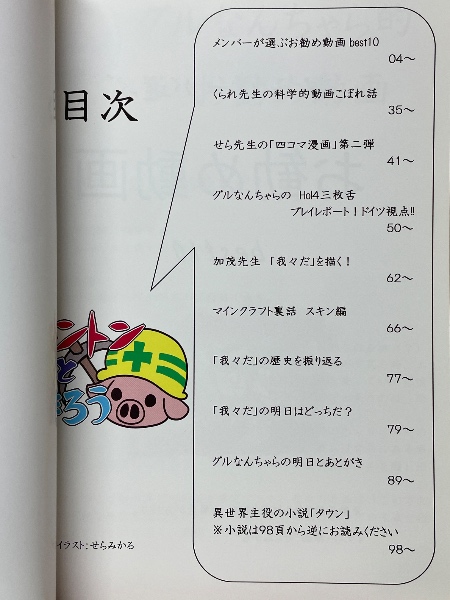 目次
メンバーが選ぶお勧め動画 best10
04～
くられ先生の科学的動画こぼれ話
35～
せら先生の「四コマ漫画」第二弾
41～
グルなんちゃらの HoI4三枚舌
プレイレポート！ドイツ視点!!
50～
加茂先生 「我々だ」を描く！
62～
マインクラフト裏話 スキン編
66～
「我々だ」の歴史を振り返る
77～
「我々だ」の明日はどっちだ？
79～
グルなんちゃらの明日とあとがき
89～
異世界主役の小説「ダウン」
※小説は98頁から逆にお読みください
98～
ントン
と
ろう
イラスト：せらみかる